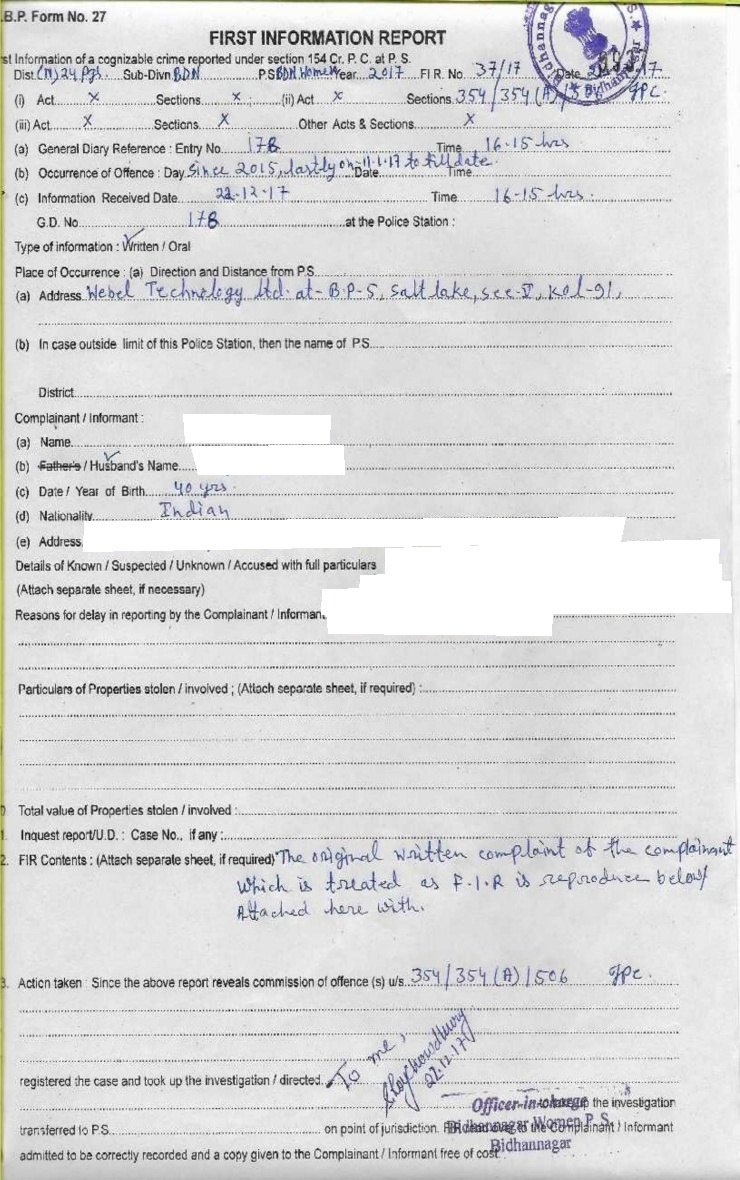 .B.P. Form No. 27
FIRST INFORMATION REPORT
st Information of a cognizable crime reported under section 154 Cr. P. C. at P. S.
Dist. (N) 24 Pgs. Sub-Divn. BDN P.S. BDN Women Year 2017 FI R. No. 37/17 Date 17
(i) Act x Sections x (ii) Act x Sections 354/354(A)/506 IPC
(iii) Act x Sections x Other Acts & Sections x
(a) General Diary Reference : Entry No. 178 Time 16-15 hrs
(b) Occurrence of Offence : Day since 2015, lastly on-11.1.17 to till date. Date Time
(c) Information Received Date 22-12-17 Time 16-15 hrs.
G.D. No. 178 at the Police Station :
Type of information : Written / Oral
Place of Occurrence : (a) Direction and Distance from P.S.
(a) Address Webel Technology Ltd. at- B.P-5, Salt lake, sec-V, Kol-91,
(b) In case outside limit of this Police Station, then the name of P.S.
District
Complainant / Informant :
(a) Name
(b) Father's / Husband's Name
(c) Date / Year of Birth 40 yrs.
(d) Nationality Indian
(e) Address
Details of Known / Suspected / Unknown / Accused with full particulars
(Attach separate sheet, if necessary)
Reasons for delay in reporting by the Complainant / Informan
Particulars of Properties stolen / involved ; (Attach separate sheet, if required) :
Total value of Properties stolen / involved :
1. Inquest report/U.D. : Case No., if any :
2. FIR Contents : (Attach separate sheet, if required) The original written complaint of the complainant
which is treated as F.I.R is reproduce below/
Attached here with.
3. Action taken : Since the above report reveals commission of offence (s) u/s. 354/354(A)/506 IPC.
registered the case and took up the investigation / directed To me,
SRoyChowdhury
22.12.17
Officer-in-charge to take up the investigation
transferred to P.S. on point of jurisdiction. FIR read over to the Complainant / Informant
Bidhannagar Women P.S.
Bidhannagar
admitted to be correctly recorded and a copy given to the Complainant / Informant free of cost.